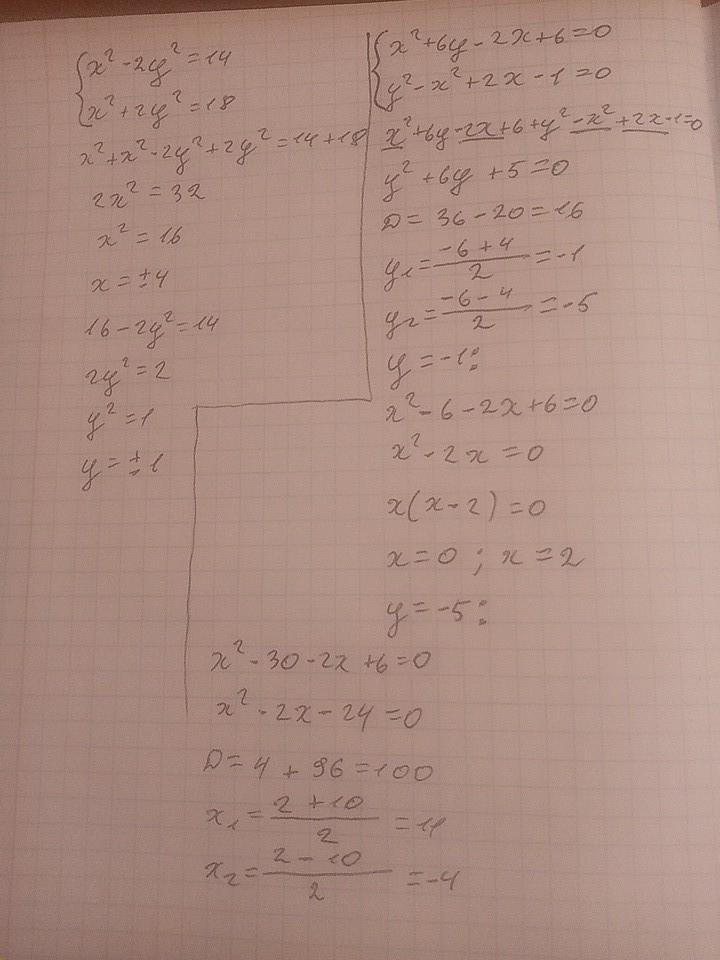 x² - 2y² = 14
x² + 2y² = 18
x² + x² - 2y² + 2y² = 14 + 18
2x² = 32
x² = 16
x = ±4
16 - 2y² = 14
2y² = 2
y² = 1
y = ±1
x² + 6y - 2x + 6 = 0
y² - x² + 2x - 1 = 0
x² + 6y - 2x + 6 + y² - x² + 2x - 1 = 0
y² + 6y + 5 = 0
D = 36 - 20 = 16
y₁ = (-6 + 4)/2 = -1
y₂ = (-6 - 4)/2 = -5
y = -1:
x² - 6 - 2x + 6 = 0
x² - 2x = 0
x(x - 2) = 0
x = 0 ; x = 2
y = -5:
x² - 30 - 2x + 6 = 0
x² - 2x - 24 = 0
D = 4 + 96 = 100
x₁ = (2 + 10)/2 = 11
x₂ = (2 - 10)/2 = -4